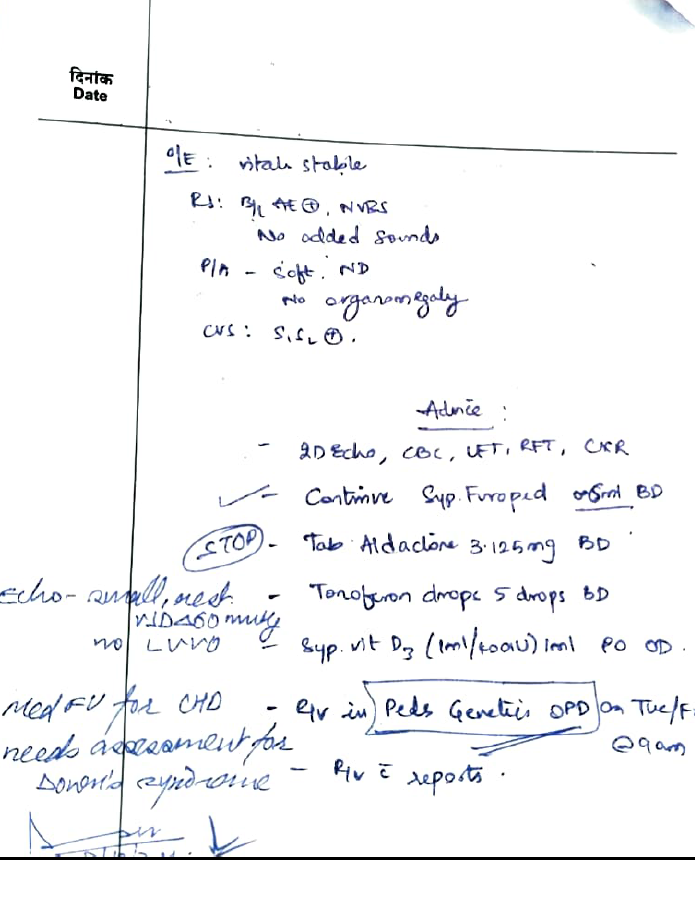 दिनांक
Date
O/E : vitals stable
RS: B/L AE ⊕, NVBS
No added sounds
P/A - Soft. ND
No organomegaly
CVS : S1S2 ⊕.
Advice :
- 2D Echo, CBC, LFT, RFT, CXR
✓ - Continue Syp. Furoped 0.5ml BD
STOP - Tab Aldactone 3.125mg BD
Echo - small, rest. - Tonoferon drops 5 drops BD
VSD Δ60 mmHg
no LVVO - Syp. vit D3 (1ml/400IU) 1ml PO OD.
Med FU for CHD - R/v in Peds Genetics OPD on Tue/F
needs assessment for @9am
Down's syndrome - R/v c̄ reports.